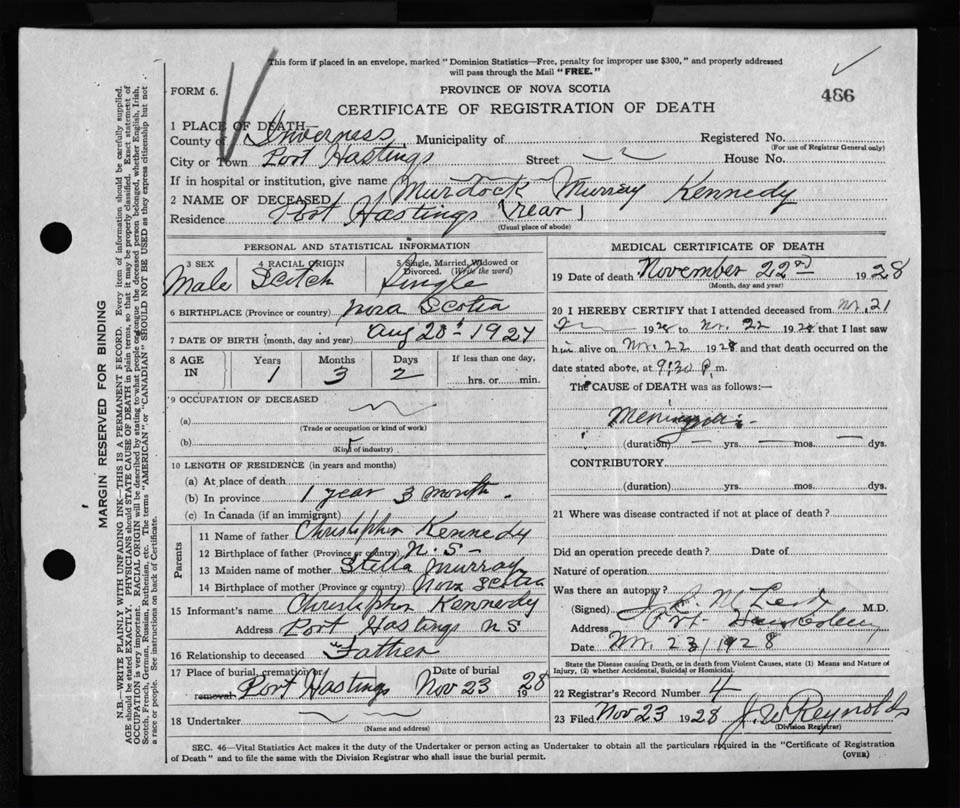 This form if placed in an envelope, marked "Dominion Statistics—Free, penalty for improper use $300," and properly addressed
will pass through the Mail "FREE."
FORM 6.
PROVINCE OF NOVA SCOTIA
486
CERTIFICATE OF REGISTRATION OF DEATH
1 PLACE OF DEATH—
County of Inverness Municipality of Registered No.
(For use of Registrar General only)
City or Town Port Hastings Street House No.
If in hospital or institution, give name
2 NAME OF DECEASED Murdock Murray Kennedy
Residence Port Hastings (rear)
(Usual place of abode)
PERSONAL AND STATISTICAL INFORMATION
3 SEX 4 RACIAL ORIGIN 5 Single, Married, Widowed or
Divorced. (Write the word)
Male Scotch Single
6 BIRTHPLACE (Province or country) Nova Scotia
7 DATE OF BIRTH (month, day and year) Aug 20 1927
8 AGE Years Months Days If less than one day,
IN 1 3 2 hrs. or min.
9 OCCUPATION OF DECEASED
(a)
(Trade or occupation or kind of work)
(b)
(Kind of industry)
10 LENGTH OF RESIDENCE (in years and months)
(a) At place of death
(b) In province 1 year 3 months
(c) In Canada (if an immigrant)
Parents
11 Name of father Christopher Kennedy
12 Birthplace of father (Province or country) N.S-
13 Maiden name of mother Stella Murray
14 Birthplace of mother (Province or country) Nova Scotia
15 Informant's name Christopher Kennedy
Address Port Hastings NS
16 Relationship to deceased Father
17 Place of burial, cremation or Date of burial
removal Port Hastings Nov 23 1928
18 Undertaker
(Name and address)
MEDICAL CERTIFICATE OF DEATH
19 Date of death November 22nd 1928
(Month, day and year)
20 I HEREBY CERTIFY that I attended deceased from Nov. 21
1928 to Nov. 22 1928 that I last saw
him alive on Nov. 22 1928 and that death occurred on the
date stated above, at 9:30 P.m.
The CAUSE of DEATH was as follows:—
(duration) — yrs. — mos. — dys.
CONTRIBUTORY
(duration) yrs. mos. dys.
21 Where was disease contracted if not at place of death?
Did an operation precede death? Date of
Nature of operation
Was there an autopsy?
(Signed) M.D.
Address Port
Date Nov. 23/1928
State the Disease causing Death, or in death from Violent Causes, state (1) Means and Nature of
Injury, (2) whether Accidental, Suicidal or Homicidal.
22 Registrar's Record Number 4
23 Filed Nov 23 1928 J. W Reynolds
(Division Registrar)
SEC. 46—Vital Statistics Act makes it the duty of the Undertaker or person acting as Undertaker to obtain all the particulars required in the "Certificate of Registration
of Death" and to file the same with the Division Registrar who shall issue the burial permit.
(OVER)
MARGIN RESERVED FOR BINDING
N.B.—WRITE PLAINLY WITH UNFADING INK—THIS IS A PERMANENT RECORD. Every item of information should be carefully supplied.
AGE should be stated EXACTLY. PHYSICIANS should STATE CAUSE OF DEATH in plain terms, so that it may be properly classified. Exact statement of
OCCUPATION is very important. RACIAL ORIGIN will be described by stating to what people or tongue the deceased person belonged, whether English, Irish,
Scotch, French, German, Russian, Ruthenian, etc. The terms "AMERICAN" or "CANADIAN" SHOULD NOT BE USED as they express citizenship but not
a race or people. See instructions on back of Certificate.